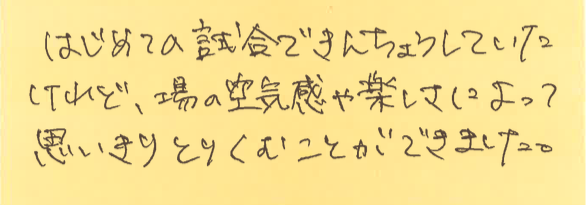 はじめての試合できんちょうしていた
けれど、場の空気感や楽しさによって
思いきりとりくむことができました。